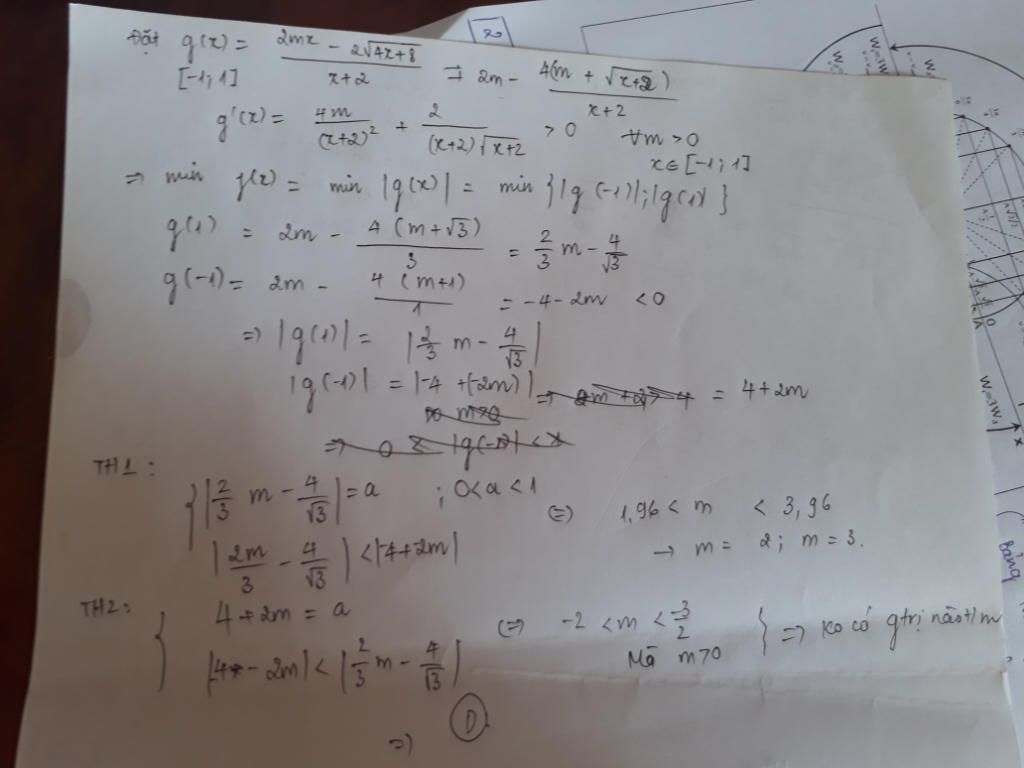 Đặt g(x) = (2mx - 2√(4x+8))/(x+2) => 2m - 4(m + √(x+2))/(x+2)
[-1; 1]
g'(x) = 4m/(x+2)² + 2/((x+2)√(x+2)) > 0 ∀m > 0
x ∈ [-1; 1]
=> min f(x) = min |g(x)| = min {|g(-1)|; |g(1)|}
g(1) = 2m - 4(m+√3)/3 = 2/3 m - 4/√3
g(-1) = 2m - 4(m+1)/1 = -4-2m < 0
=> |g(1)| = |2/3 m - 4/√3|
|g(-1)| = |-4 + (-2m)| = 4+2m
TH1:
{ |2/3 m - 4/√3| = a ; 0<a<1
|2m/3 - 4/√3| < |-4+2m|
(=) 1,96 < m < 3,96
→ m = 2; m = 3.
TH2:
{ 4+2m = a
|4 - 2m| < |2/3 m - 4/√3|
(=) -2 < m < -3/2
Mà m>0
} => ko có gtrị nào t/m
=> D